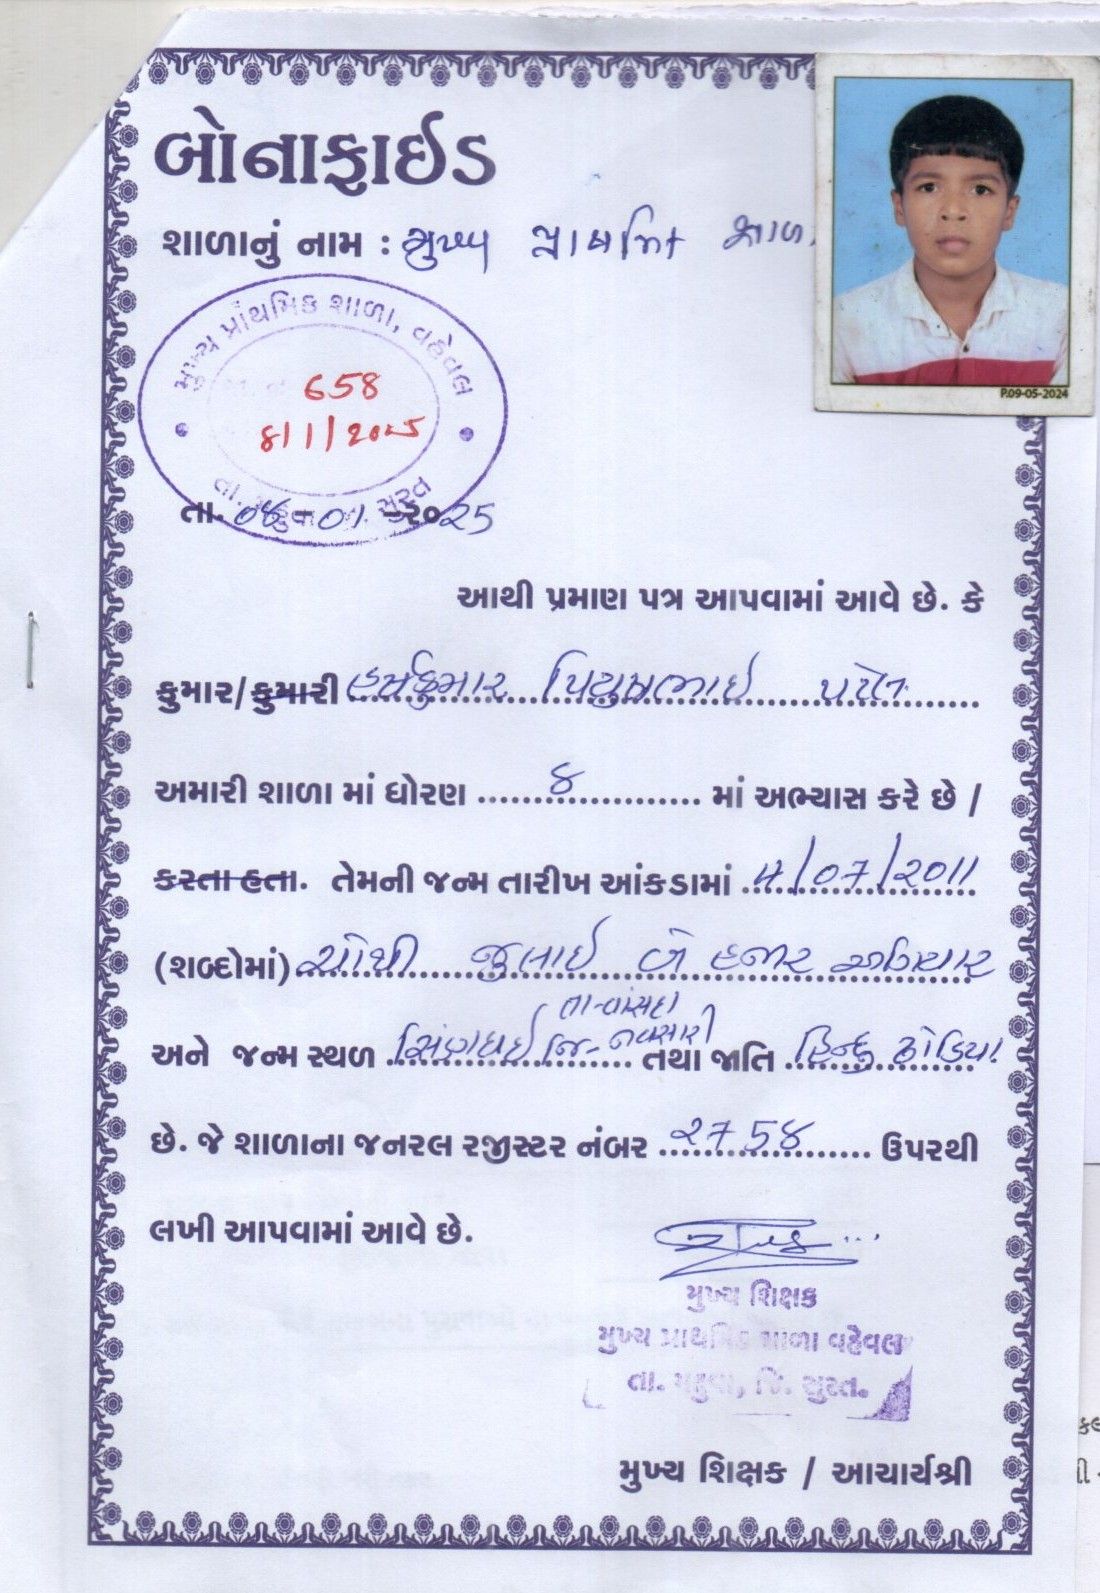 બોનાફાઈડ
શાળાનું નામ : મુખ્ય પ્રાથમિક શાળા
P.09-05-2024
મુખ્ય પ્રાથમિક શાળા, વહેવલ
658
8/1/2025
તા. મહુવા જિ. સુરત
તા. 08-01-૨૦25
આથી પ્રમાણ પત્ર આપવામાં આવે છે. કે
કુમાર/કુમારી હર્ષકુમાર પિયુષભાઈ પટેલ
અમારી શાળા માં ધોરણ ..... ૮ ..... માં અભ્યાસ કરે છે /
કરતા હતા. તેમની જન્મ તારીખ આંકડામાં 4/07/2011
(શબ્દોમાં) ચોથી જુલાઈ બે હજાર અગિયાર
તા-વાંસદા
અને જન્મ સ્થળ જિ-નવસારી તથા જાતિ હિન્દુ ઢોડિયા
છે. જે શાળાના જનરલ રજીસ્ટર નંબર ..૨754.. ઉપરથી
લખી આપવામાં આવે છે.
મુખ્ય શિક્ષક
મુખ્ય પ્રાથમિક શાળા વહેવલ
તા. મહુવા, જિ. સુરત.
મુખ્ય શિક્ષક / આચાર્યશ્રી